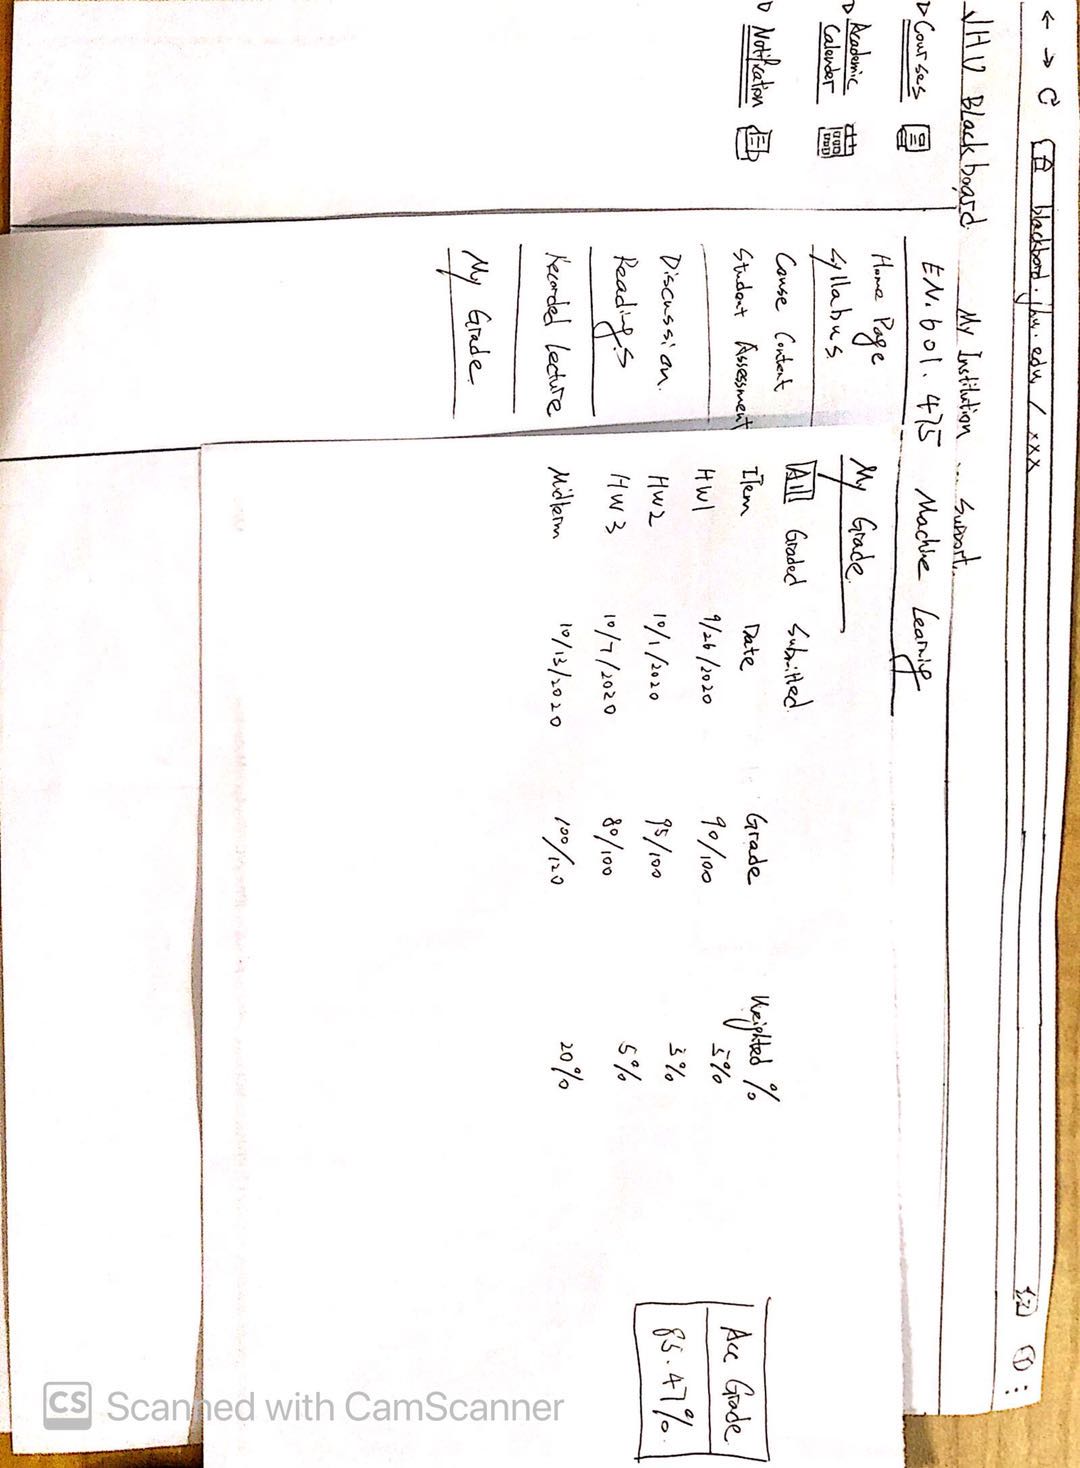 ← → C blackbord.jhu.edu/xxx
JHU Blackboard My Institution ... Support..
▷ Courses
▷ Academic
Calender
▷ Notification
EN.601.475 Machine Learning
Home Page
Syllabus
Couse Content
Student Assessment
Discussion.
Readings
Recorded Lecture
My Grade.
My Grade.
All Graded Submitted.
Item Date Grade Weighted %
HW1 9/26/2020 90/100 5%
HW2 10/1/2020 95/100 3%
HW3 10/7/2020 80/100 5%
Midterm 10/13/2020 100/120 20%
Acc Grade
85.47%.
CS Scanned with CamScanner